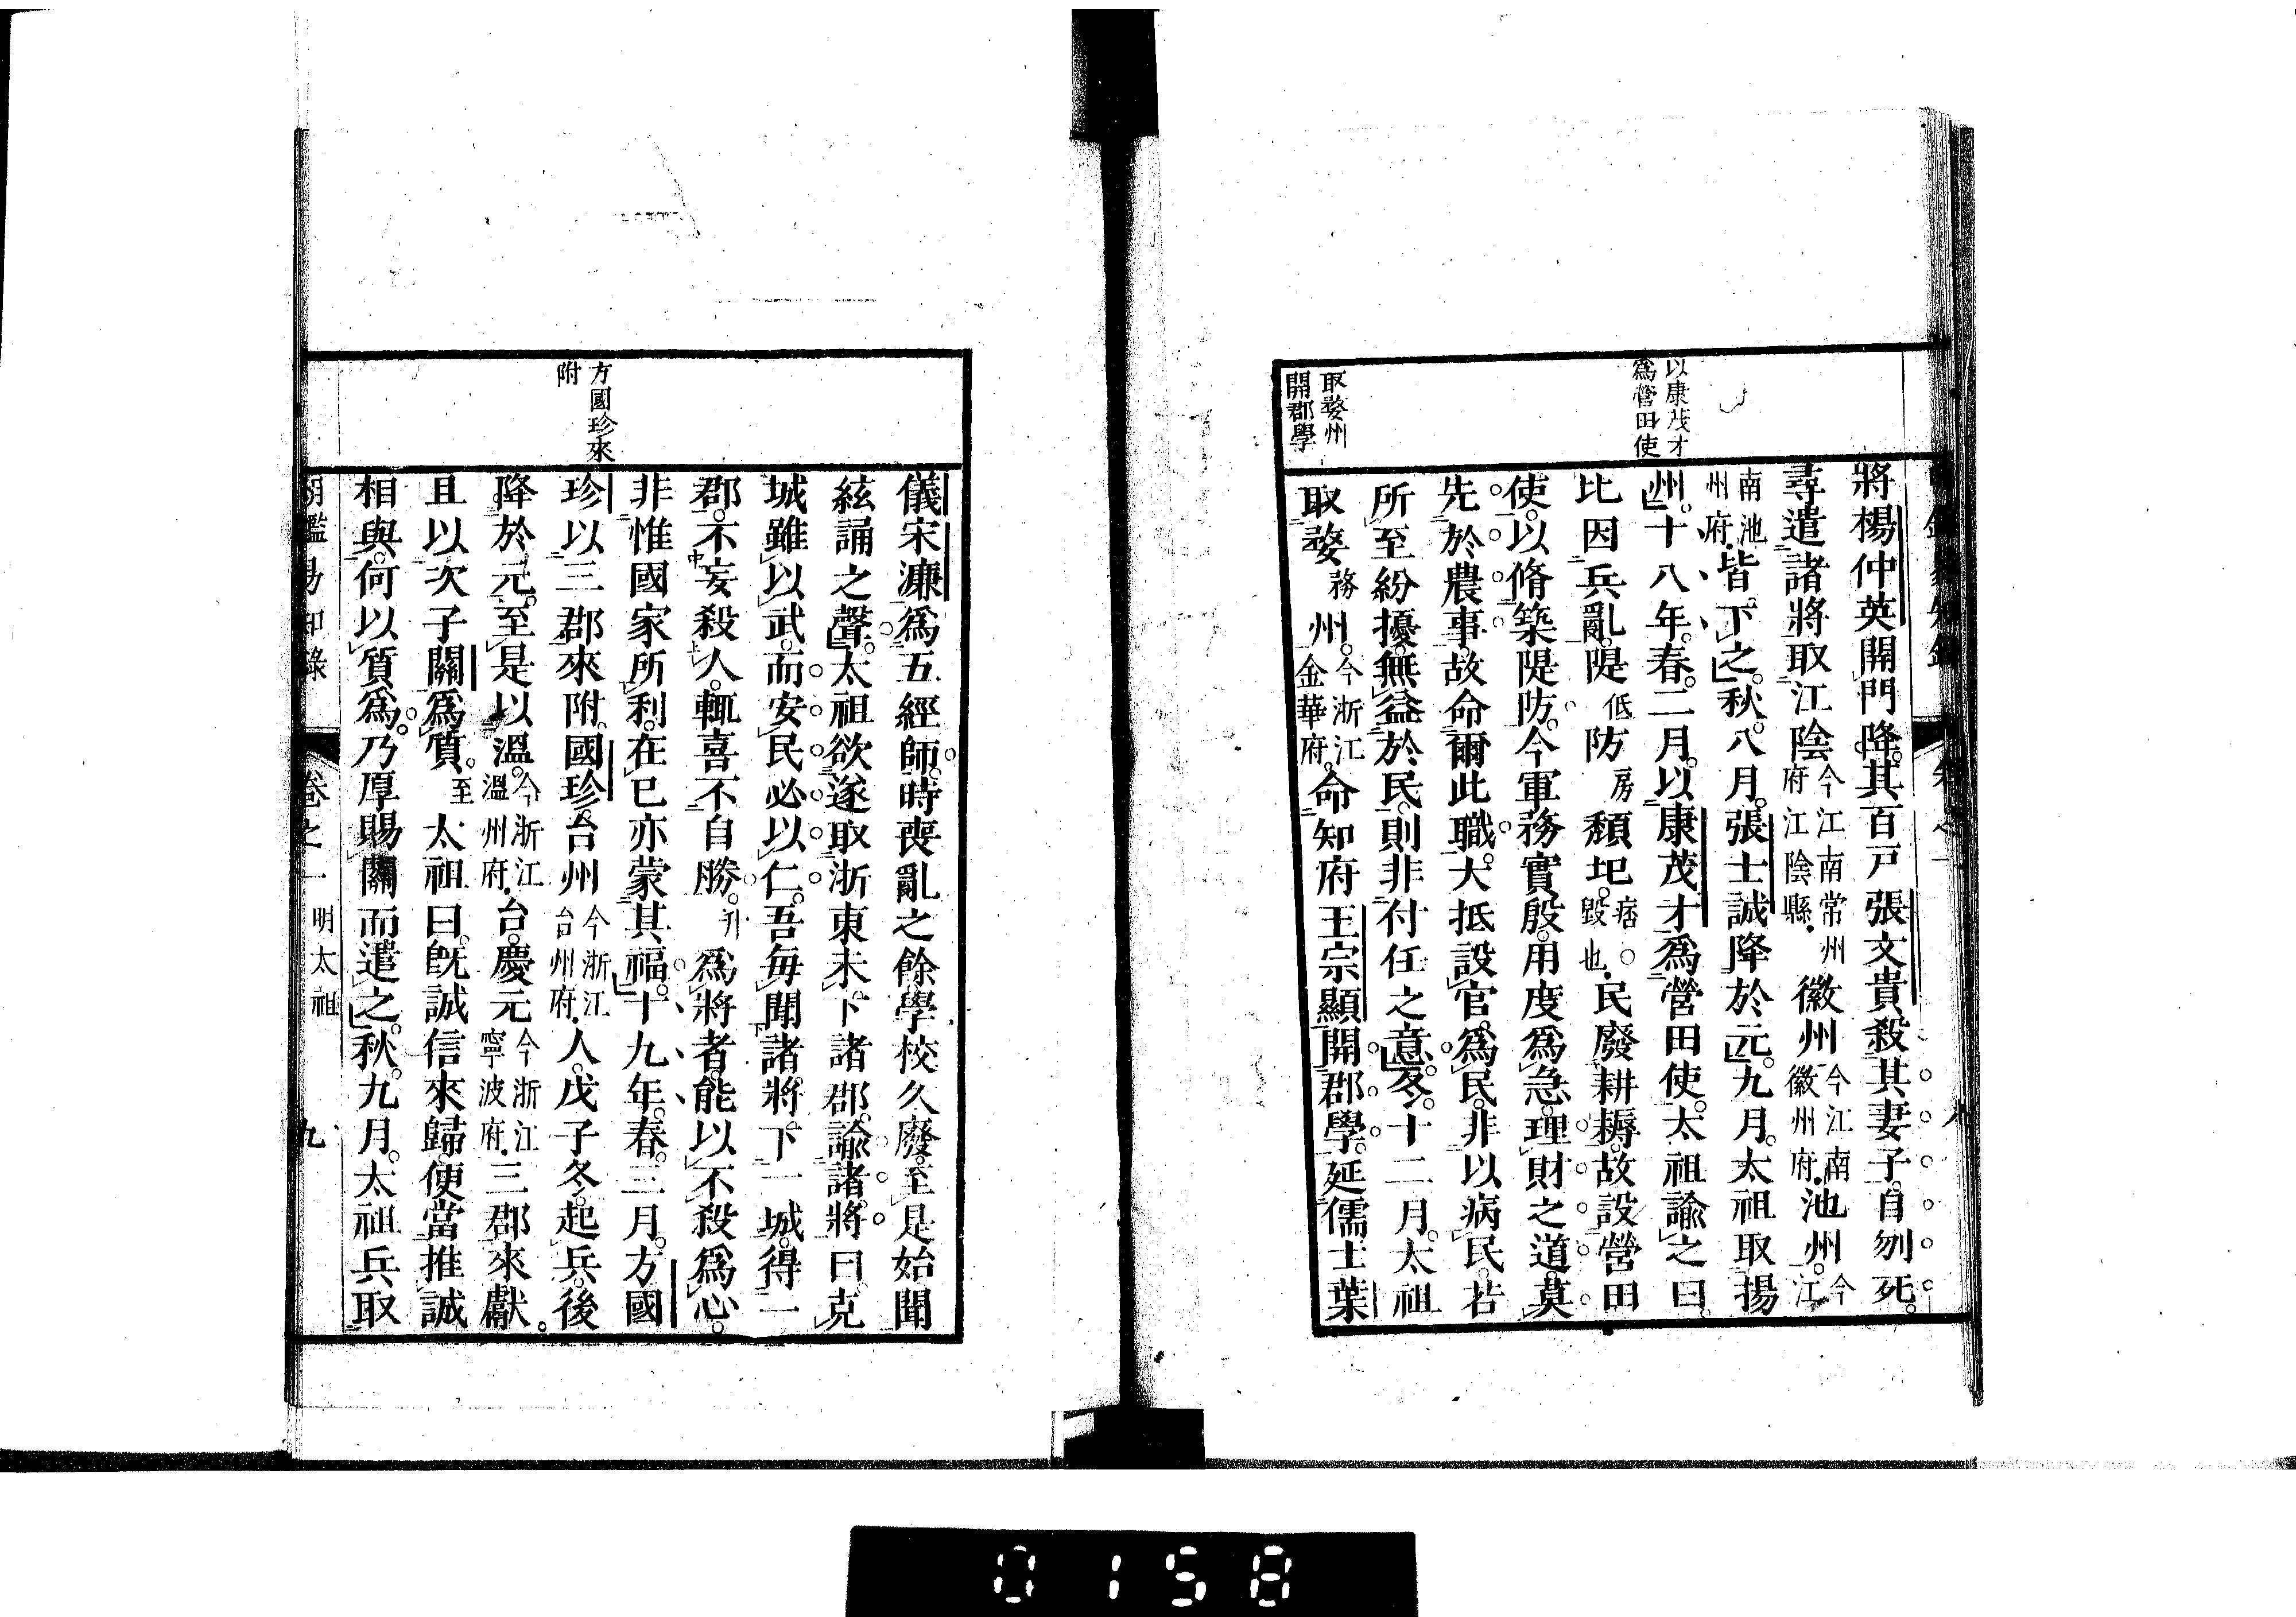 以康茂才
爲營田使
取婺州
開郡學
將楊仲英開門降。其百戸張文貴殺其妻子。自刎死。
尋遣諸將取江陰今江南常州府江陰縣。徽州今江南徽州府。池州。今江
南池州府。皆下之。秋。八月。張士誠降於元。九月。太祖取揚
州。十八年。春。二月。以康茂才爲營田使。太祖諭之曰。
比因兵亂。隄低防房頽圯。痞。毀也。民廢耕耨。故設營田
使。以脩築隄防。今軍務實殷。用度爲急。理財之道。莫
先於農事。故命爾此職。大抵設官。爲民。非以病民。若
所至紛擾。無益於民。則非付任之意。冬。十二月。太祖
取婺務州。今浙江金華府。命知府王宗顯開郡學。延儒士葉
方國珍來
附
儀宋濂爲五經師。時喪亂之餘學校久廢。至是始聞
絃誦之聲。太祖欲遂取浙東未下諸郡。諭諸將曰。克
城雖以武。而安民必以仁。吾毎聞諸將。下一城。得一
郡。不妄殺人。輒喜不自勝。升爲將者。能以不殺爲心。
非惟國家所利。在已亦蒙其福。十九年。春。三月。方國
珍以三郡來附。國珍。台州今浙江台州府。人。戊子冬。起兵。後
降於元。至是以溫。今浙江溫州府。台。慶元今浙江寧波府。三郡來獻。
且以次子關爲質。至太祖曰。旣誠信來歸。便當推誠
相與。何以質爲。乃厚賜關而遣之。秋。九月。太祖兵取
易知錄
卷之一
明太祖
九
0158